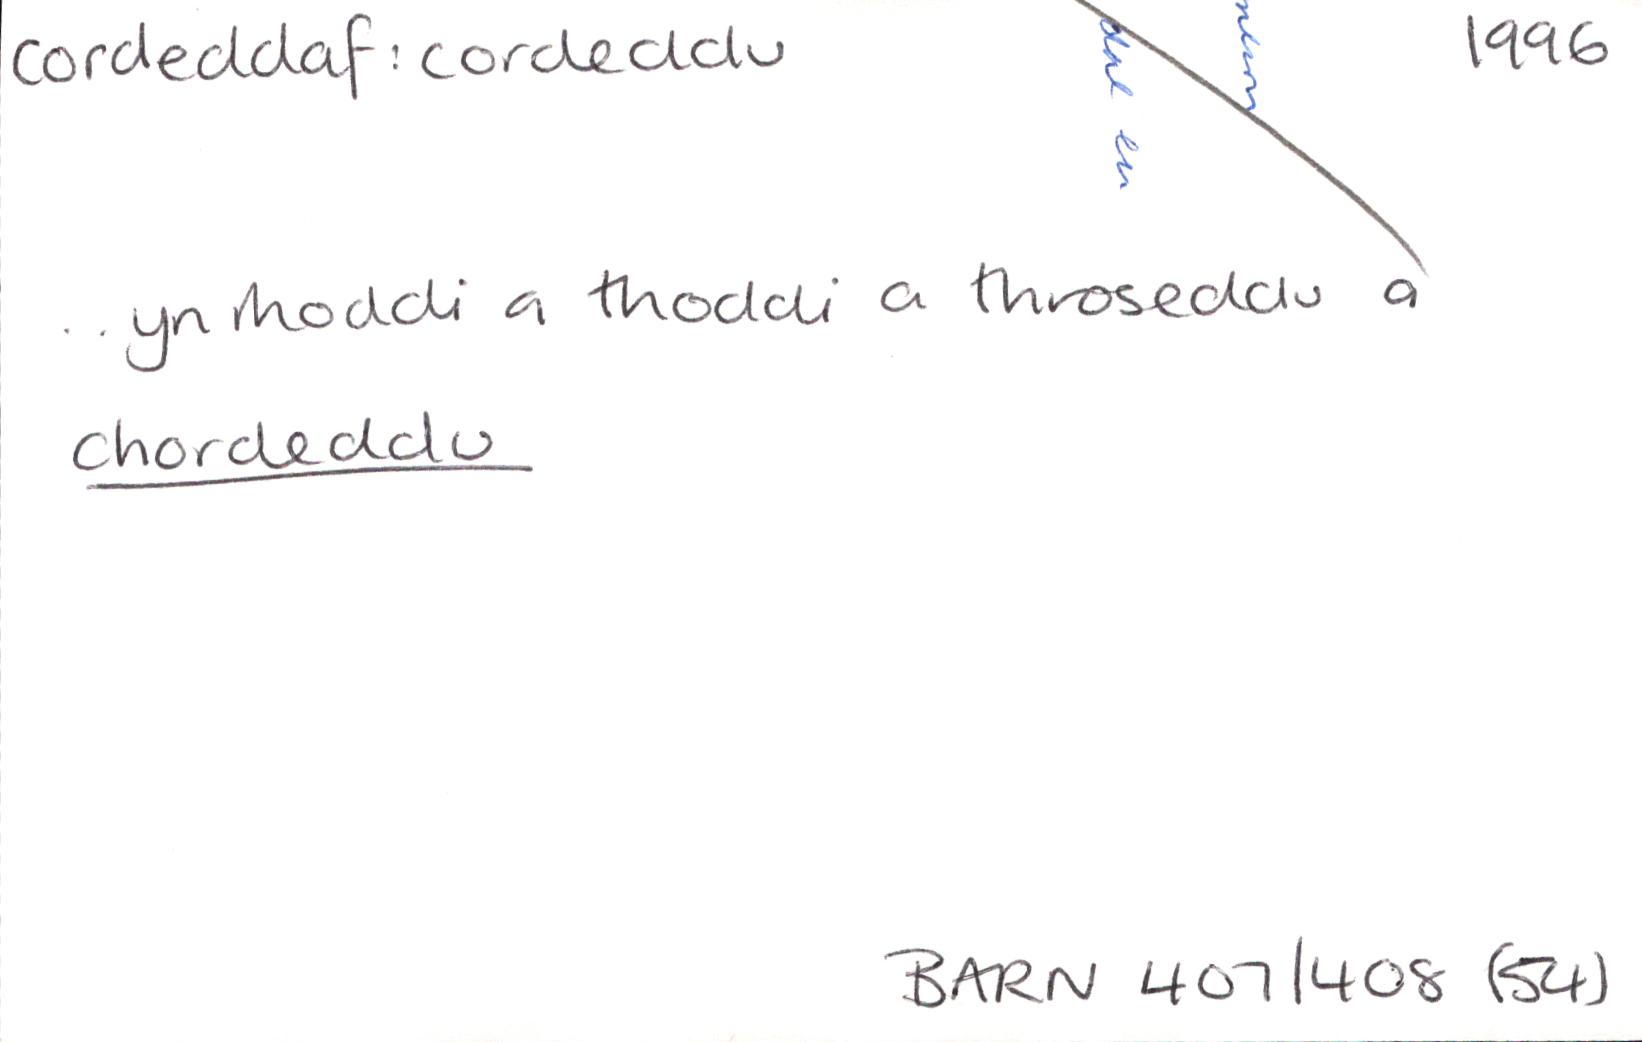 cordeddaf: cordeddu 1996
.. yn rhoddi a thoddi a throseddu a
chordeddu
BARN 407/408 (54)